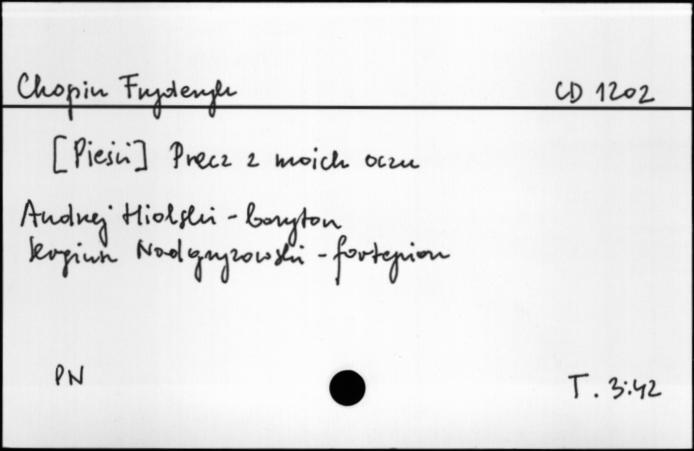 Chopin Fryderyk CD 1202
[Pieśń] Precz z moich oczu
Andrzej Hiolski - baryton
Sergiusz Nadgryzowski - fortepian
PN T. 3:42